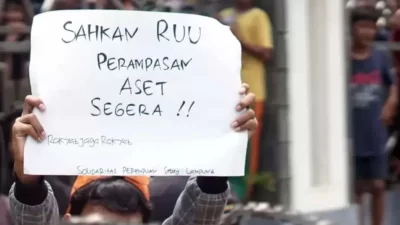 SAHKAN RUU
PERAMPASAN
ASET
SEGERA !!
Rakyat Jaga Rakyat
SOLIDARITAS PEREMPUAN LAMPUNG